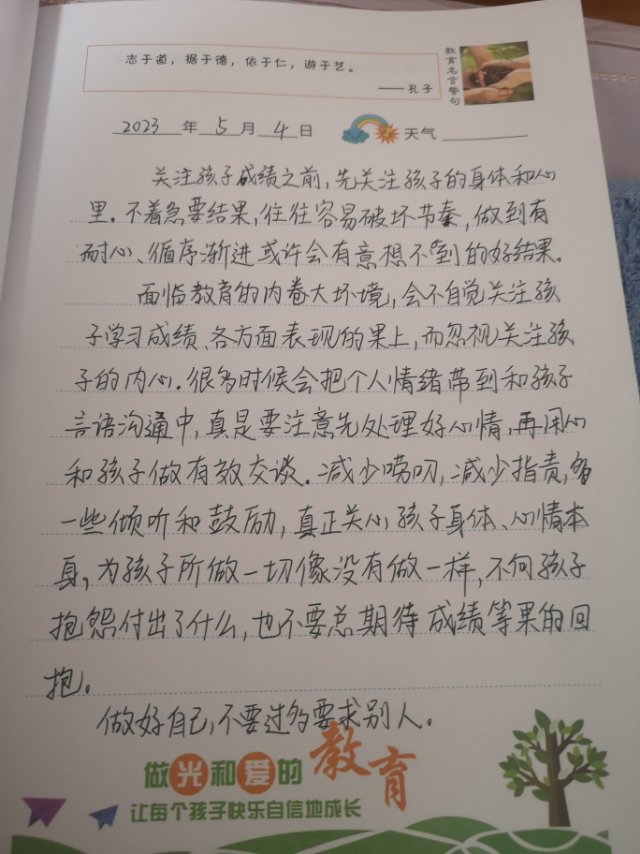 志于道，据于德，依于仁，游于艺。
——孔子
教育名言警句
2023 年 5 月 4 日 天气
关注孩子成绩之前，先关注孩子的身体和心
里。不着急要结果，往往容易破坏节奏，做到有
耐心、循序渐进或许会有意想不到的好结果。
面临教育的内卷大环境，会不自觉关注孩
子学习成绩、各方面表现的果上，而忽视关注孩
子的内心。很多时候会把个人情绪带到和孩子
言语沟通中，真是要注意先处理好心情，再用心
和孩子做有效交谈。减少唠叨，减少指责，多
一些倾听和鼓励，真正关心孩子身体、心情本
身，为孩子所做一切像没有做一样，不向孩子
抱怨付出了什么，也不要总期待成绩等果的回
抱。
做好自己，不要过多要求别人。
做光和爱的教育
让每个孩子快乐自信地成长